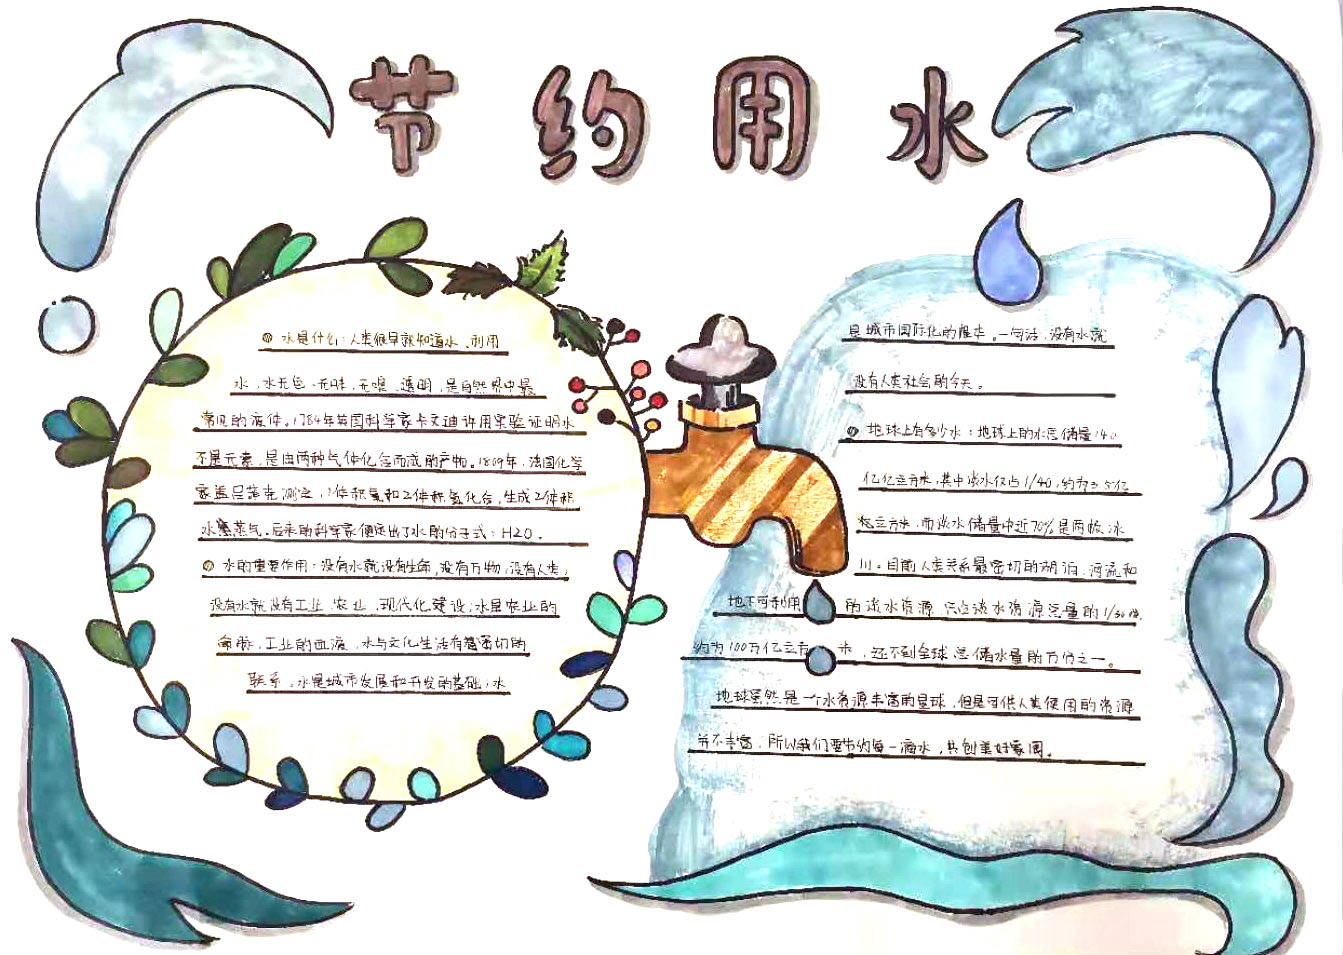 节约用水
水是什么：人类很早就知道水、利用
水，水无色、无味、无嗅、透明，是自然界中最
常见的液体。1784年英国科学家卡文迪许用实验证明水
不是元素，是由两种气体化合而成的产物。1809年，法国化学
家盖吕萨克测定，1体积氧和2体积氢化合，生成2体积
水蒸气。后来的科学家便定出了水的分子式：H2O。
水的重要作用：没有水就没有生命，没有万物，没有人类；
没有水就没有工业、农业、现代化建设；水是农业的
命脉，工业的血液，水与文化生活有着密切的
联系，水是城市发展和开发的基础；水
是城市国际化的根本。一句话，没有水就
没有人类社会的今天。
地球上有多少水：地球上的水总储量140
亿亿立方米，其中淡水仅占1/40，约为3.5亿
亿立方米，而淡水储量中近70%是两极冰
川。目前人类关系最密切的湖泊、河流和
地下可利用的淡水资源仅占淡水资源总量的1/30
约为100万亿立方米，还不到全球总储水量的万分之一。
地球虽然是一个水资源丰富的星球，但是可供人类使用的资源
并不丰富，所以我们要节约每一滴水，共创美好家园。